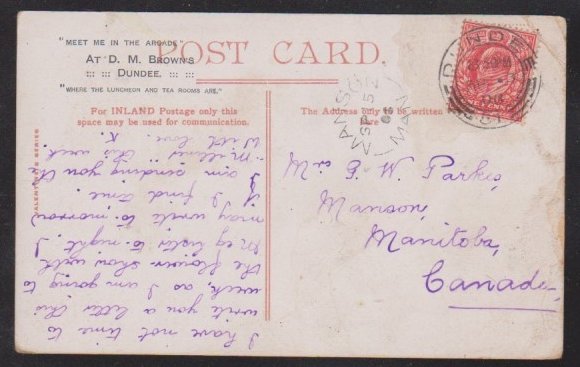 "MEET ME IN THE ARCADE"
AT D. M. BROWN'S
::: ::: DUNDEE. ::: :::
"WHERE THE LUNCHEON AND TEA ROOMS ARE."
POST CARD.
For INLAND Postage only this
space may be used for communication.
The Address only to be written
here
DUNDEE
MANSON
SP 15
06
MAN
VALENTINE'S SERIES
I have not time to
write you a letter this
week, as I am going to
the flower show with
Meg Lister to-night. I
may write to-morrow
if I find time.
I am sending you the
"Millend" this week.
With love. K.
G. W. Parkes,
Manson,
Manitoba,
Canada.